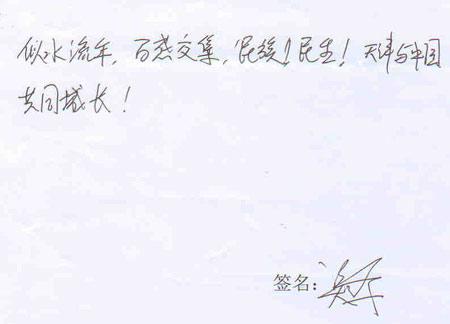 似水流年，百感交集，民族！民生！天津与中国
共同成长！
签名：